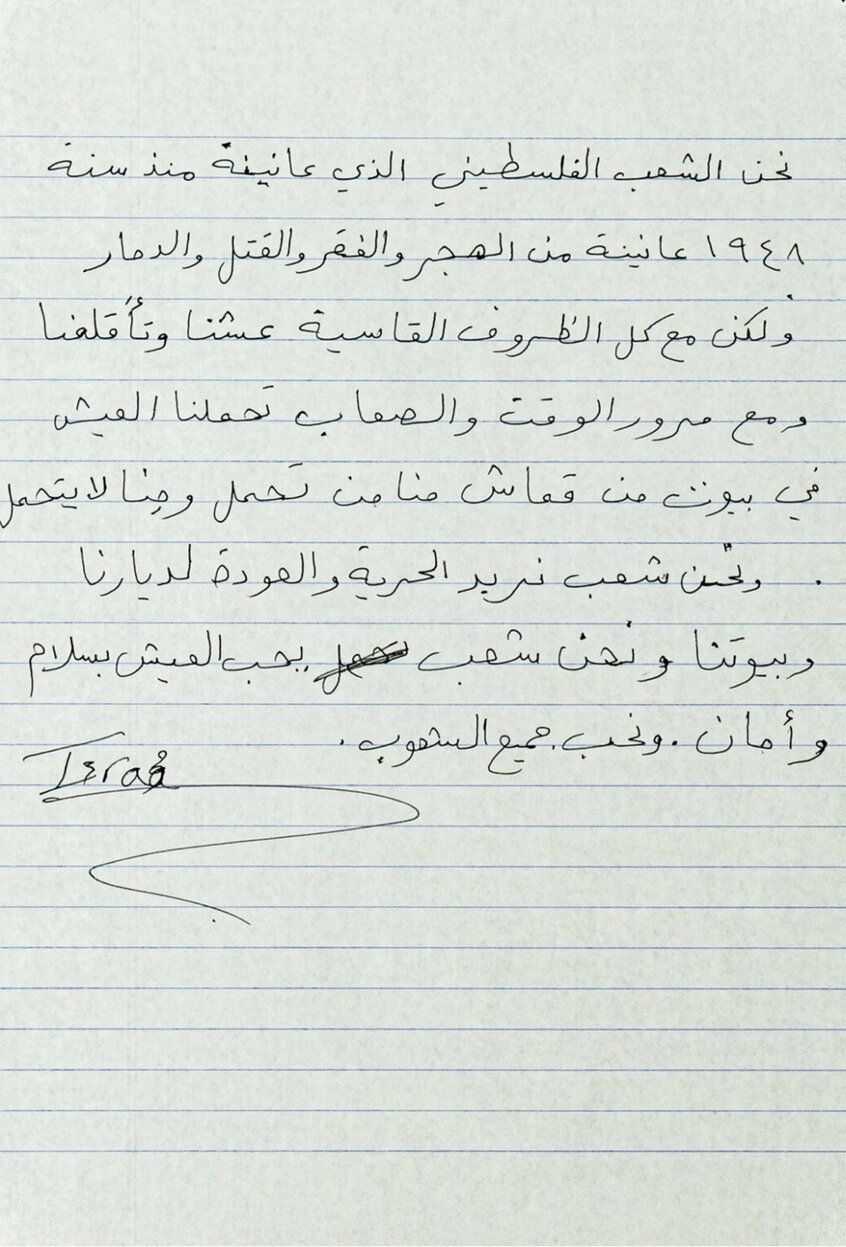 نحن الشعب الفلسطيني الذي عانينة منذ سنة
١٩٤٨ عانينة من الهجر والفقر والقتل والدمار
ولكن مع كل الظروف القاسية عشنا وتأقلمنا
ومع مرور الوقت والصعاب تحملنا العيش
في بيوت من قماش منا من تحمل ومنا لا يتحمل
. ونحن شعب نريد الحرية والعودة لديارنا
وبيوتنا ونحن شعب يحب العيش بسلام
وأمان . ونحب جميع الشعوب .